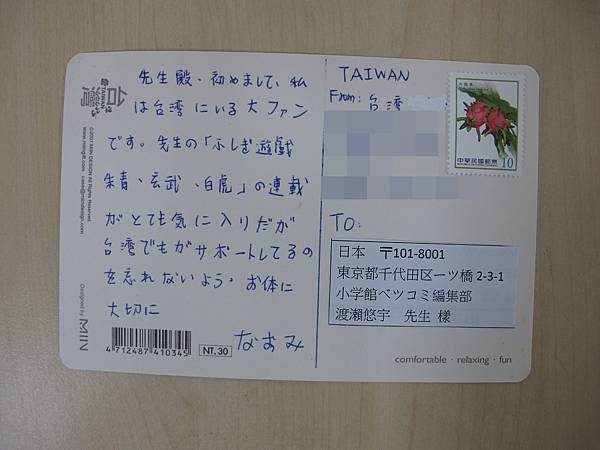 先生殿、初めまして、私
は台湾にいる大ファン
です。先生の「ふしぎ遊戯
朱青、玄武、白虎」の連載
がとても気に入りだが
台湾でもがサポートしてるの
を忘れないよう・お体に
大切に
なおみ
台灣
TAIWAN
©2007 MIIN DESIGN All Rights Reserved.
www.miingift.com
Designed by MIIN
4712487410345
NT. 30
TAIWAN
From: 台湾
中華民國郵票
10
TO:
日本 〒101-8001
東京都千代田区一ツ橋 2-3-1
小学館ベツコミ編集部
渡瀬悠宇 先生 様
comfortable · relaxing · fun